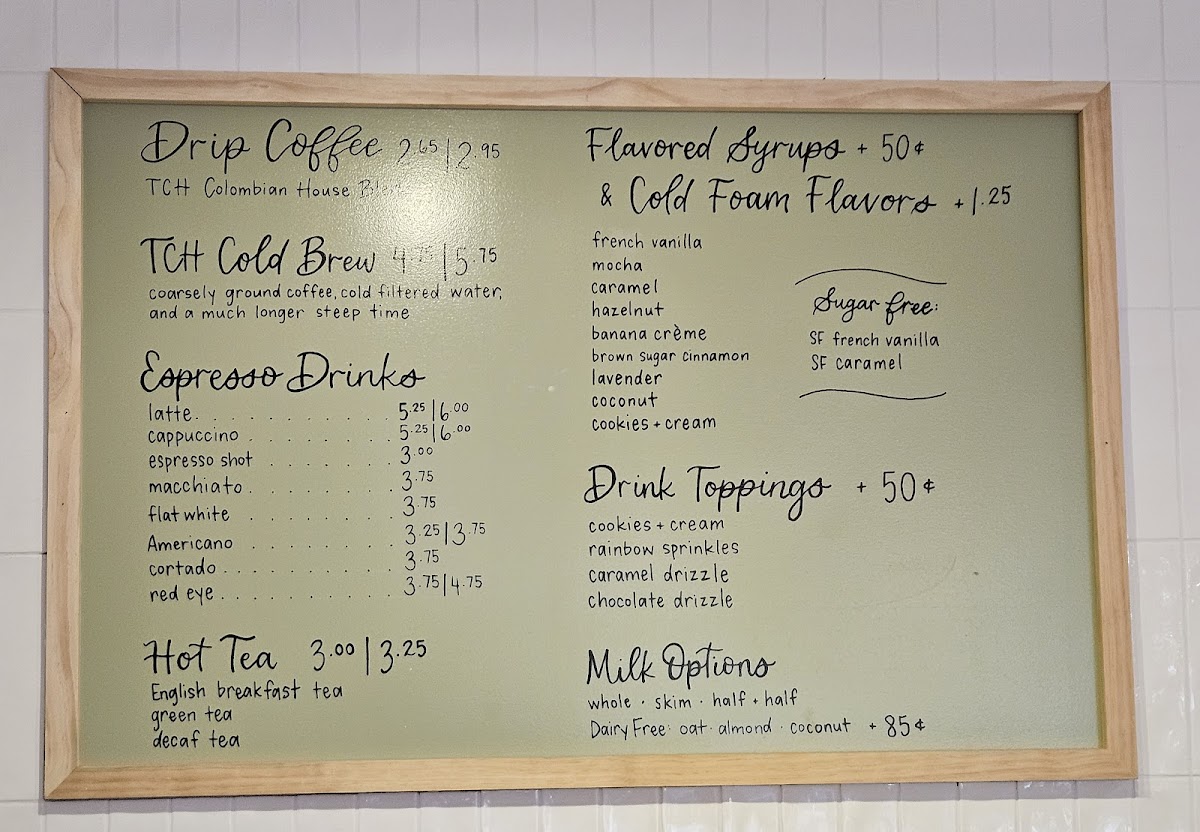 Drip Coffee 2.65|2.95
TCH Colombian House Blend
TCH Cold Brew 4.75|5.75
coarsely ground coffee, cold filtered water,
and a much longer steep time
Espresso Drinks
latte. . . . . . . . . . . 5.25|6.00
cappuccino . . . . . . . . . 5.25|6.00
espresso shot . . . . . . . 3.00
macchiato. . . . . . . . . 3.75
flat white . . . . . . . . . 3.75
Americano . . . . . . . . . 3.25|3.75
cortado. . . . . . . . . . 3.75
red eye. . . . . . . . . . 3.75|4.75
Hot Tea 3.00|3.25
English breakfast tea
green tea
decaf tea
Flavored Syrups + 50¢
& Cold Foam Flavors +1.25
french vanilla
mocha
caramel
hazelnut
banana crème
brown sugar cinnamon
lavender
coconut
cookies + cream
Sugar free:
SF french vanilla
SF caramel
Drink Toppings + 50¢
cookies + cream
rainbow sprinkles
caramel drizzle
chocolate drizzle
Milk Options
whole · skim · half + half
Dairy Free: oat · almond · coconut + 85¢